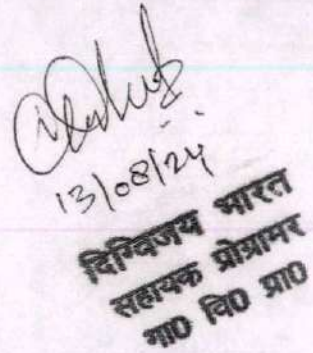 13/08/24
दिग्विजय भारत
सहायक प्रोग्रामर
गा0 वि0 प्रा0